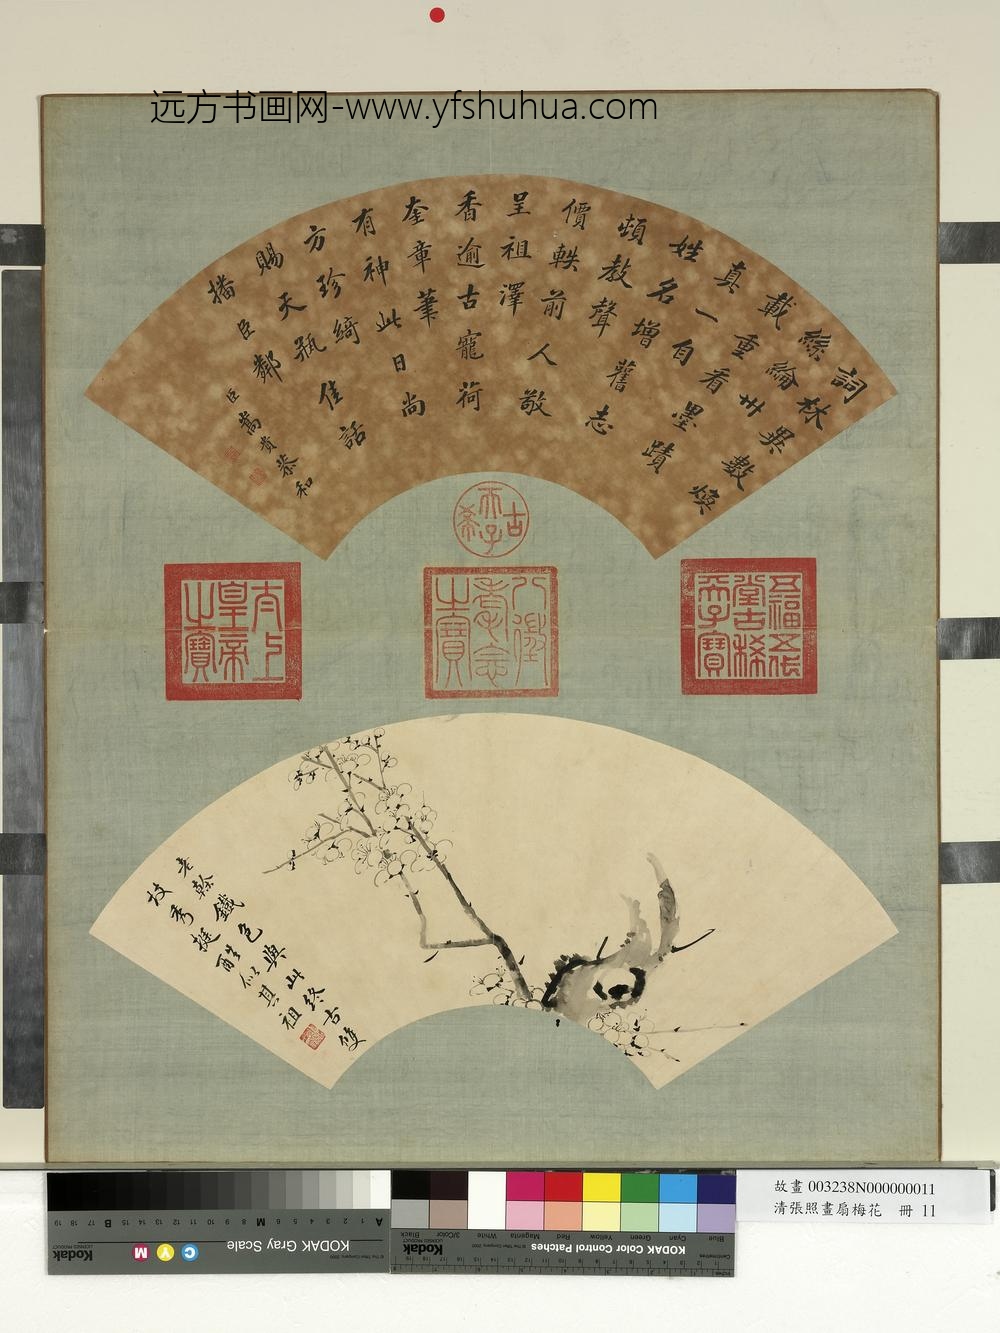 远方书画网-www.yfshuhua.com
詞林異數煥
絲綸卅
載重看墨蹟
真一自
姓名增舊志
頓教聲
價軼前人敬
呈祖澤
香逾古寵荷
奎章筆
有神此日尚
方珍綺
賜天瓶佳話
播臣鄰
臣嵩貴恭和
古希天子
五福五代堂古稀天子寶
八徵耄念之寶
太上皇帝之寶
老榦鐵色與此終古雙
枝秀挺酷似其祖
故畫 003238N000000011
清張照畫扇梅花 冊 11
KODAK Gray Scale
Kodak
C
Y
M
A 1 2 3 4 5 6 M 8 9 10 11 12 13 14 15 B 17 18 19
KODAK Color Control Patches
Kodak
LICENSED PRODUCT
Blue Cyan Green Yellow Red Magenta White 3/Color Black